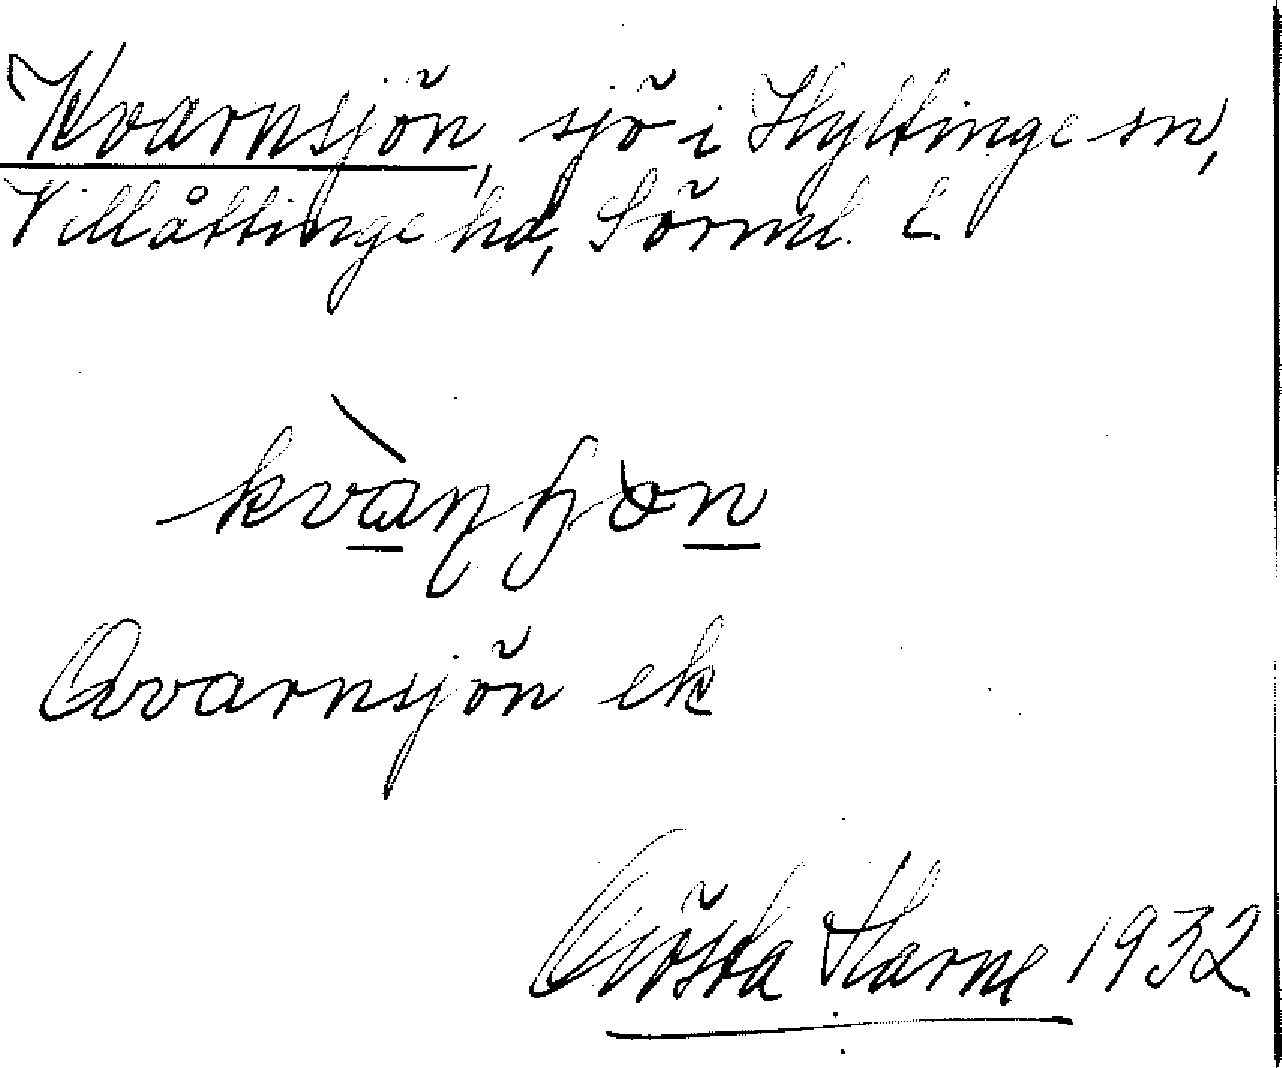 Kvarnsjön, sjö i Hyltinge sn,
Villåttinge hd, Sörml. L.
kvàɳʃon
Qvarnsjön ek
Gösta Harne 1932